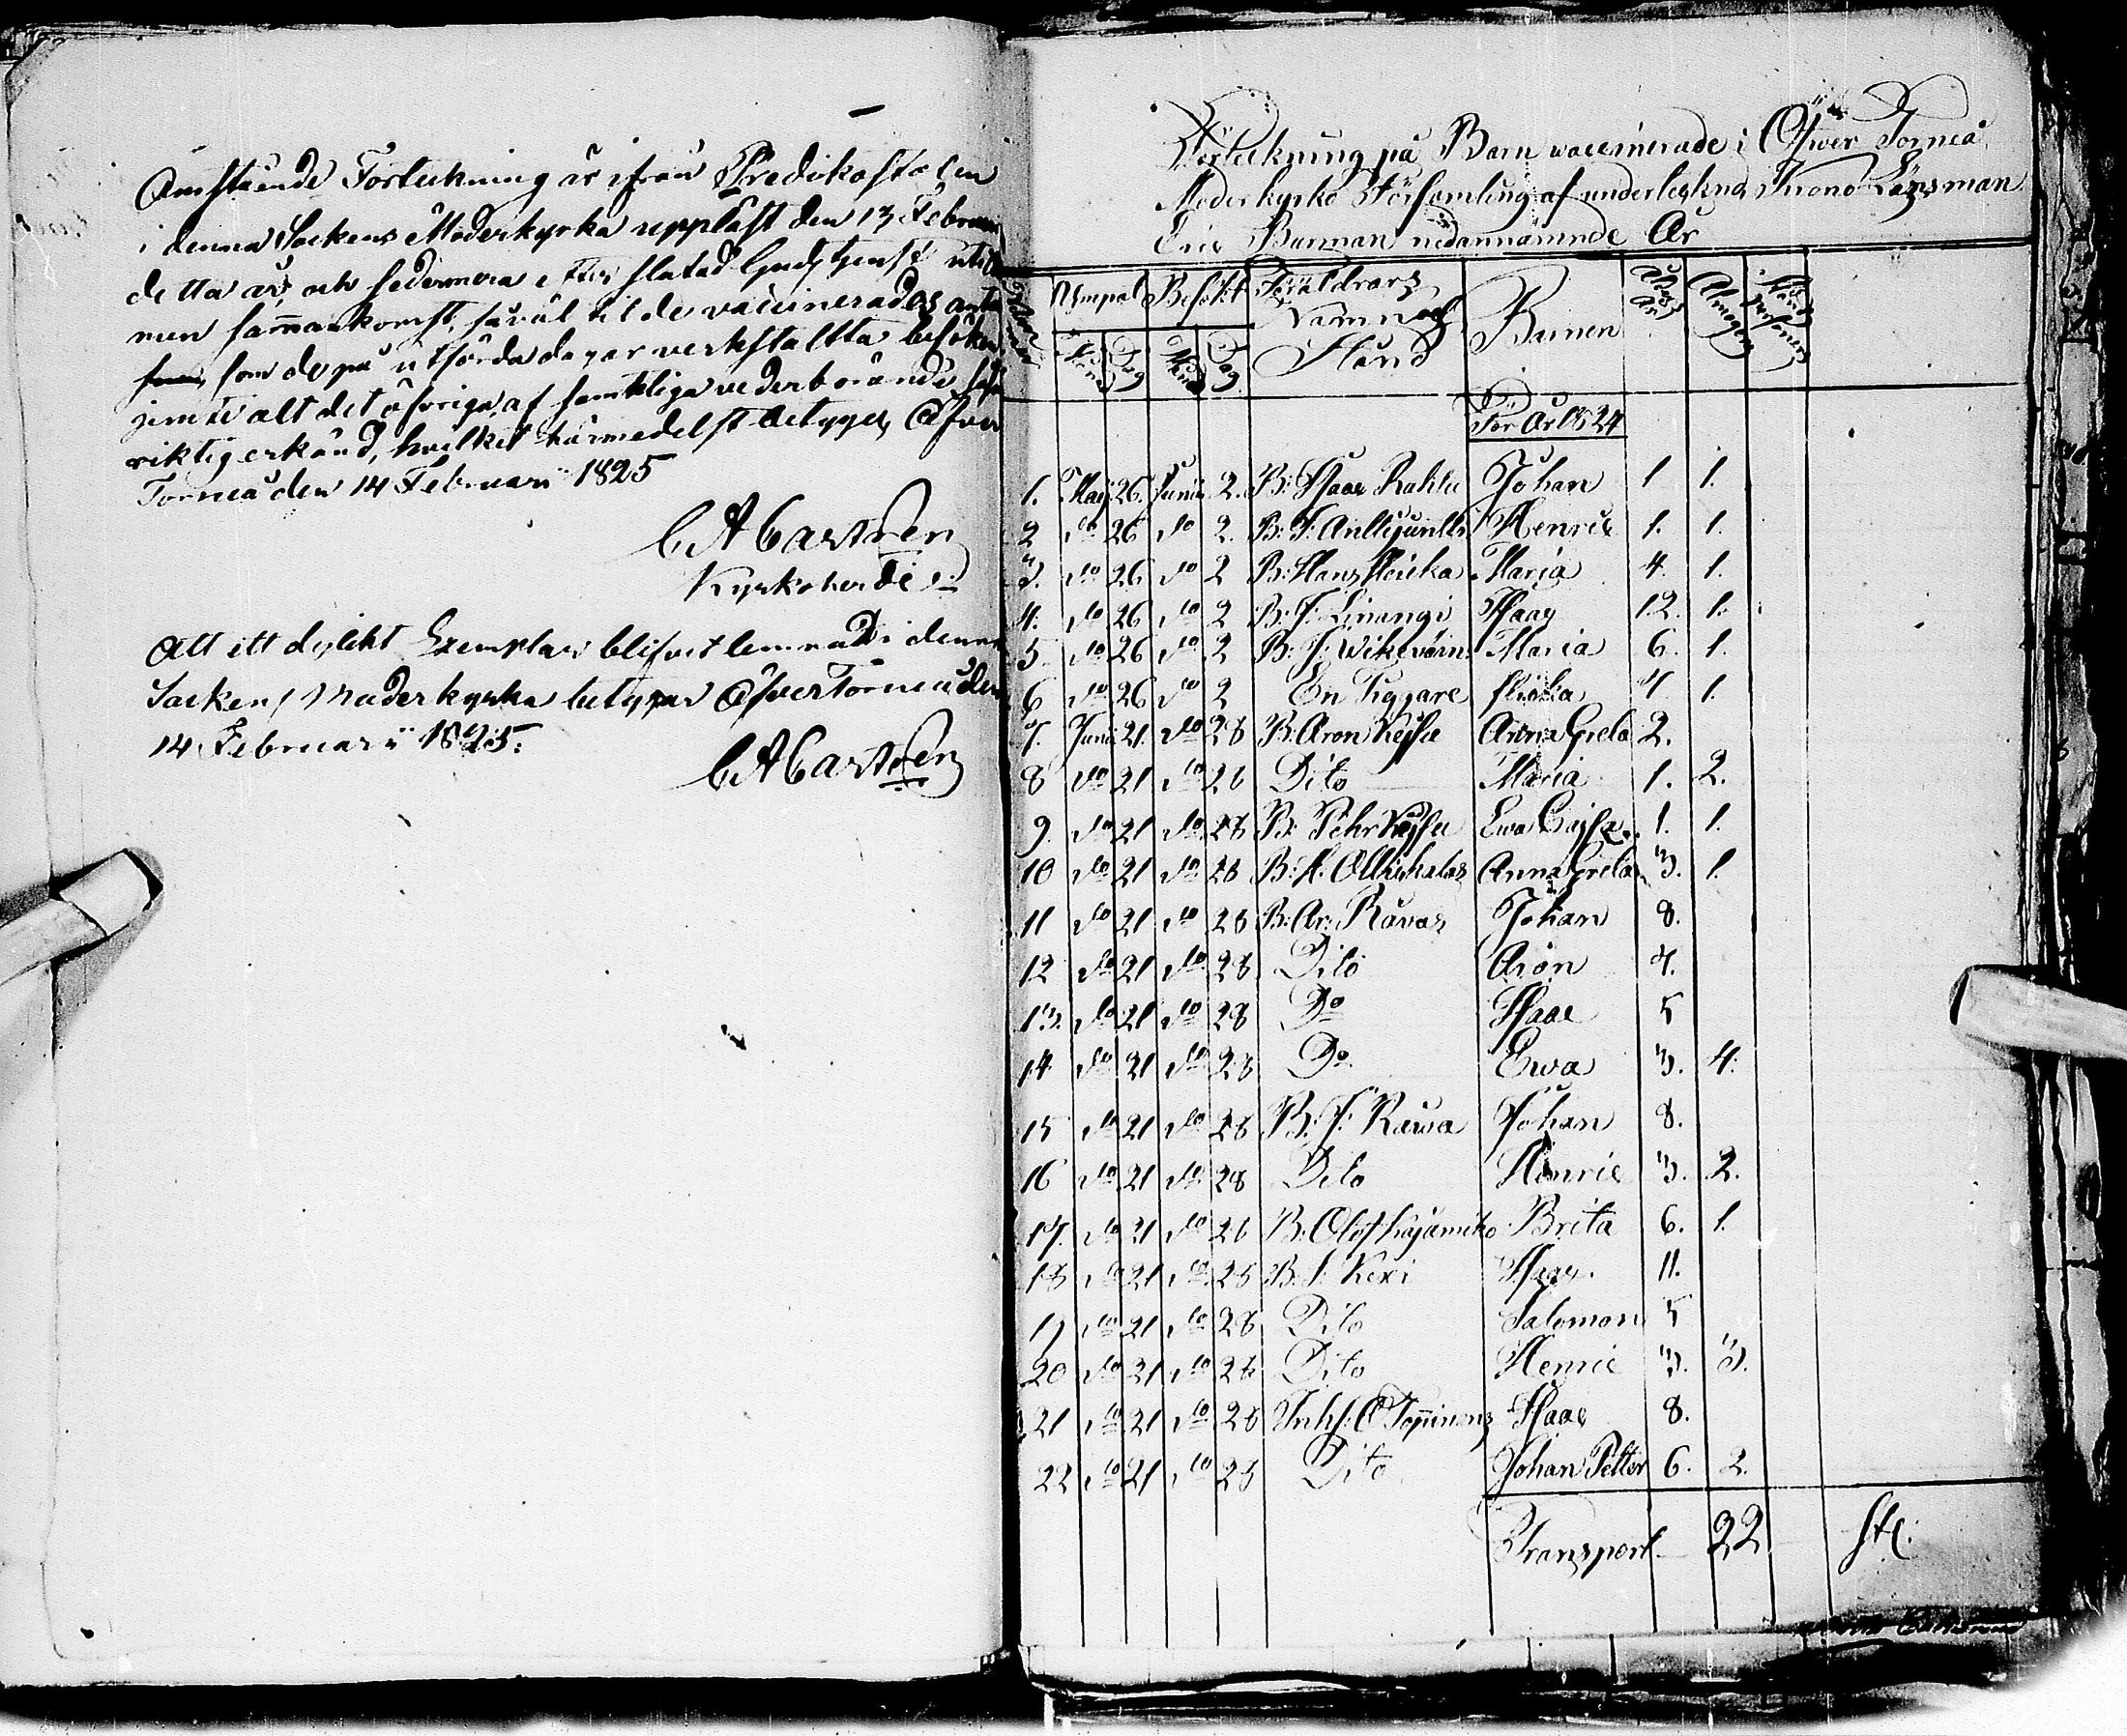 Omstående Forteckning är ifrån Predikostolen
i denna Sockens Moderkyrka uppläst den 13 Februari
detta år, och sedermera efter slutad Gudstjenst uti
men sammankomst, såväl til de vaccinerades antal
som de på utförda dagar verkställta besöken
jemte alt det öfriga, af samteliga vederbörande, såsom
riktig erkänd, hvilket härmedelst betygas, Öfver
Torneå den 14 Februarii 1825
C A Castren
Kyrkoherde
Att ett dylikt Exemplar blifvit lemnadt i denna
Socken Moderkyrka betygar Öfver Torneå den
14 Februarii 1825.
C A Castren
Förteckning på Barn vaccinerade i Öfwer Torneå
Moderkyrko Församling af underteckna Krono Länsman
Eric Burman nedannämnde År
Ympat Besökt Föräldrars Namn och Stånd Barnen Ålder År Almogen Stånds Personers
Månad Dag Månad Dag
För År 1824
1. Maij 26. Junii 2. B: Isaac Rahtu Johan 1 1.
2 do 26 do 2. B: J: Anttijuntti Henric 1. 1.
3. do 26 do 2 B: Hans Heicka Maria 4. 1.
4. do 26 do 2 B: J: Linangi Isaac 12. 1.
5. do 26 do 2 B: J: Wikevärin Maria 6. 1.
6 do 26 do 2 En Tiggare flicka 7 1.
7. Junii 21. do 28 B: Aron Keksi Anna Greta 2.
8 do 21 do 28 Dito Maria 1. 2.
9. do 21 do 28 B: Pehr Ewa Caisa 1. 1.
10 do 21 do 28 B: H. Ollickalas Anna Greta 3. 1.
11 do 21 do 28 B: Ar: Rävas Johan 8.
12 do 21 do 28 Dito Aron 7.
13. do 21 do 28 Do Isaac 5
14 do 21 do 28 Do Ewa 3. 4.
15 do 21 do 28 B: J: Räwa Johan 8.
16 do 21 do 28 Dito Henric 3. 2.
17. do 21 do 28 B: Olof Brita 6. 1.
18 do 21 do 28 B: I: Kexi Isaac 11.
19 do 21 do 28 Dito Salomon 5
20 do 21 do 28 Dito Henric 3. 3.
21 do 21 do 28 Inhs: O Isaac 8.
22 do 21 do 28 Dito Johan Petter 6. 2.
Transport 22 St.